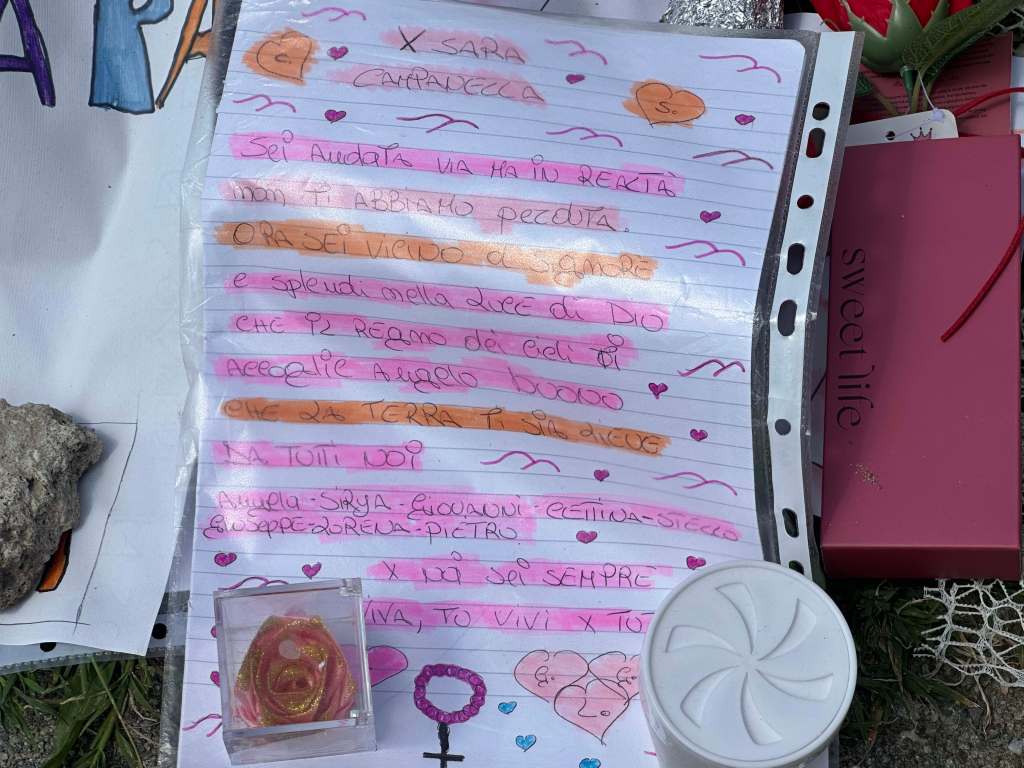 APA
C.
X SARA
CAMPANELLA
S.
Sei AndATA VIA MA IN REALTÀ
non TI ABBIAMO perduta.
ORA SEI VICINO al SIGNORE
e splendi nella LUCE di DIO
CHE IL REGNO dei cieli TI
ACCOGLIE Angelo buono
CHE LA TERRA TI SIA LIEVE
DA TUTTI NOI
Angela - SIRYA - GIOVANNI - CETTINA - STELLA
GIUSEPPE - LORENA - PIETRO
X NOI SEI SEMPRE
VIVA, TU VIVI X TU
G.
G.
L.
sweet life